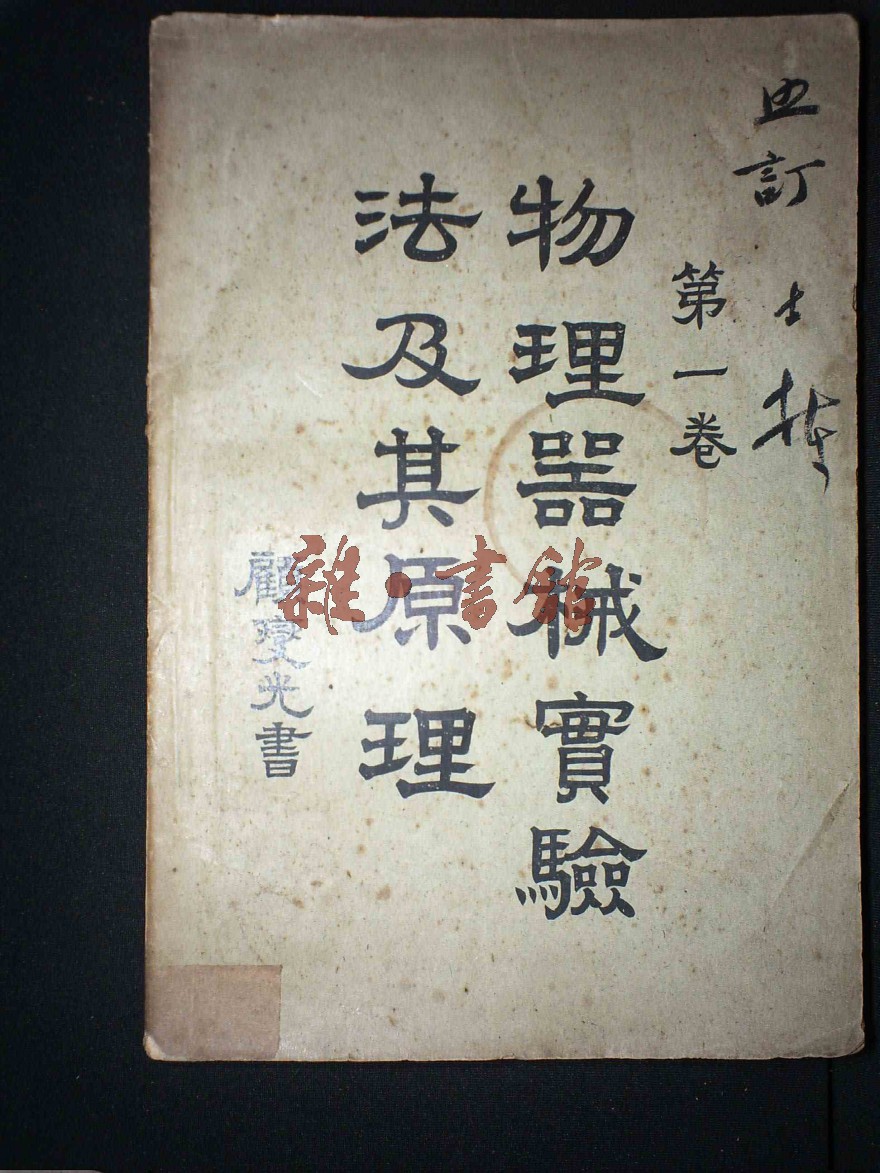 第一卷
物理器械實驗
法及其原理
顧燮光書
雜·書館